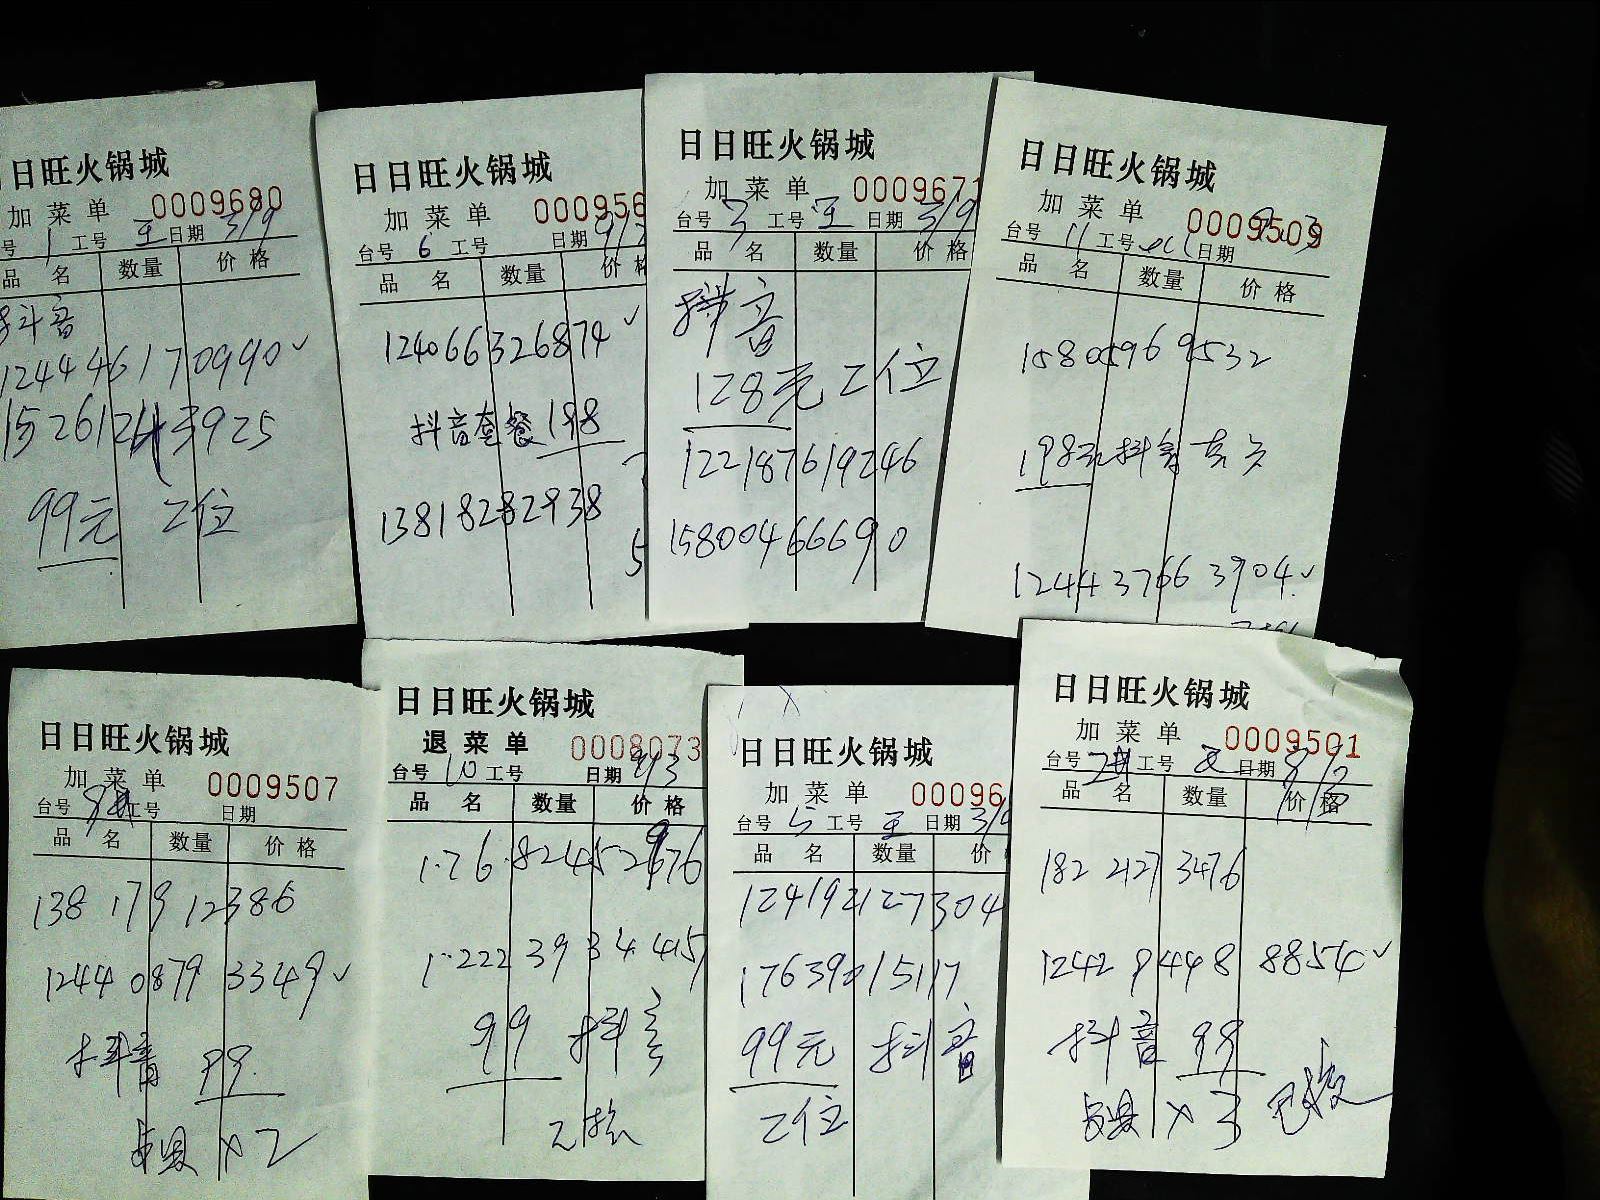 日日旺火锅城
加菜单 0009680
号 1 工号 王 日期 3/9
品 名 数量 价格
抖音
124446170990✓
15261243925
99元 2位
日日旺火锅城
加菜单 000956
台号 6 工号 日期
品 名 数量 价格
124066326874✓
抖音套餐 188
13818282938
日日旺火锅城
加菜单 0009671
台号 3 工号 王 日期 3/9
品 名 数量 价格
抖音
128元 2位
122187619246
15800466690
日日旺火锅城
加菜单 0009509
台号 11 工号 日期
品 名 数量 价格
15805969532
198元抖音
124437663904✓
日日旺火锅城
加菜单 0009507
台号 8 工号 日期
品 名 数量 价格
138 179 12386
1244 0879 3349✓
抖音 99
x2
日日旺火锅城
退菜单 0008073
台号 10 工号 日期 9/3
品 名 数量 价格
176 8245 2976
1222 39 34 415
99 抖音
日日旺火锅城
加菜单 00096
台号 5 工号 王 日期 3/9
品 名 数量 价
124192127304
17639215117
99元 抖音
2位
日日旺火锅城
加菜单 0009501
台号 2 工号 日期
品 名 数量 价格
182 2127 3476
1242 9448 8854✓
抖音 99
x3